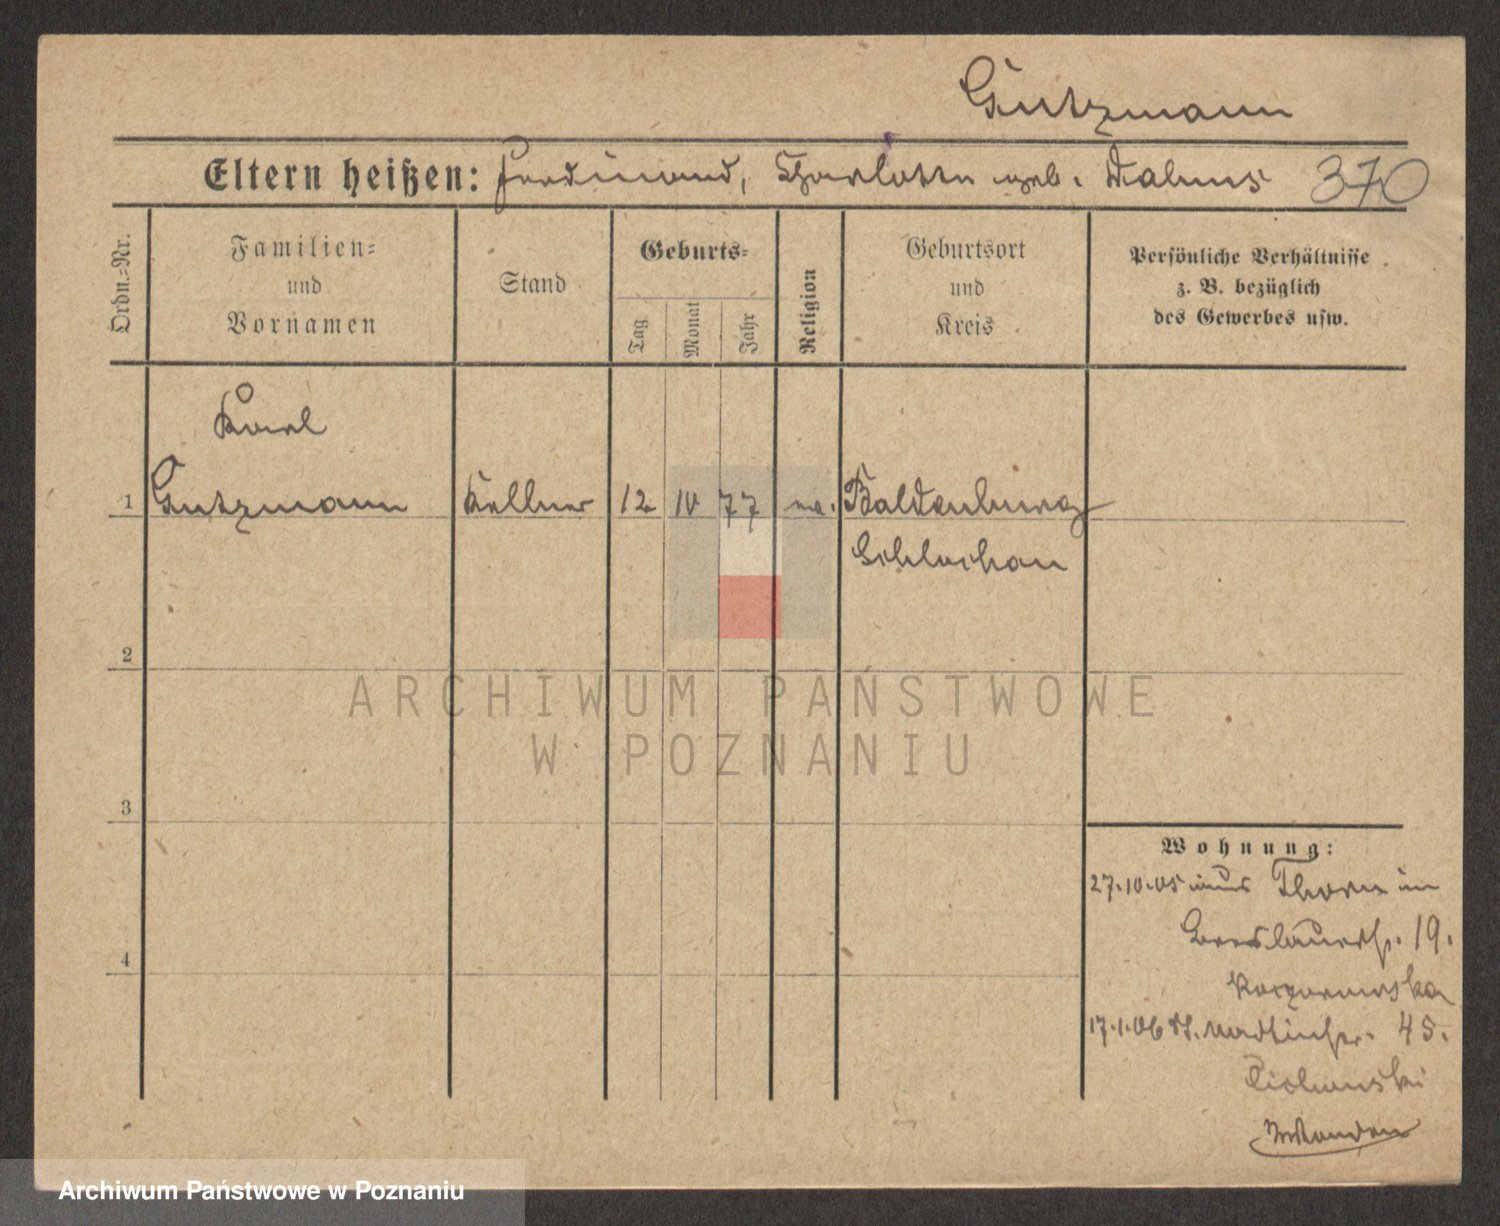 Gutzmann
Eltern heißen: Ferdinand, Charlotte geb. Dalmer 370
Ordn.-Nr.
Familien-
und
Vornamen
Stand
Geburts-
Tag
Monat
Jahr
Religion
Geburtsort
und
Kreis
Persönliche Verhältnisse
z. B. bezüglich
des Gewerbes usw.
Karl
1 Gutzmann Kellner 12 10 77 ev. Baldenburg
Schlochau
2
3
4
Wohnung:
27.10.05 aus Thorn in
Breslauerstr. 19.
17.1.06 St. Martinstr. 45.
ARCHIWUM PAŃSTWOWE
W POZNANIU
Archiwum Państwowe w Poznaniu